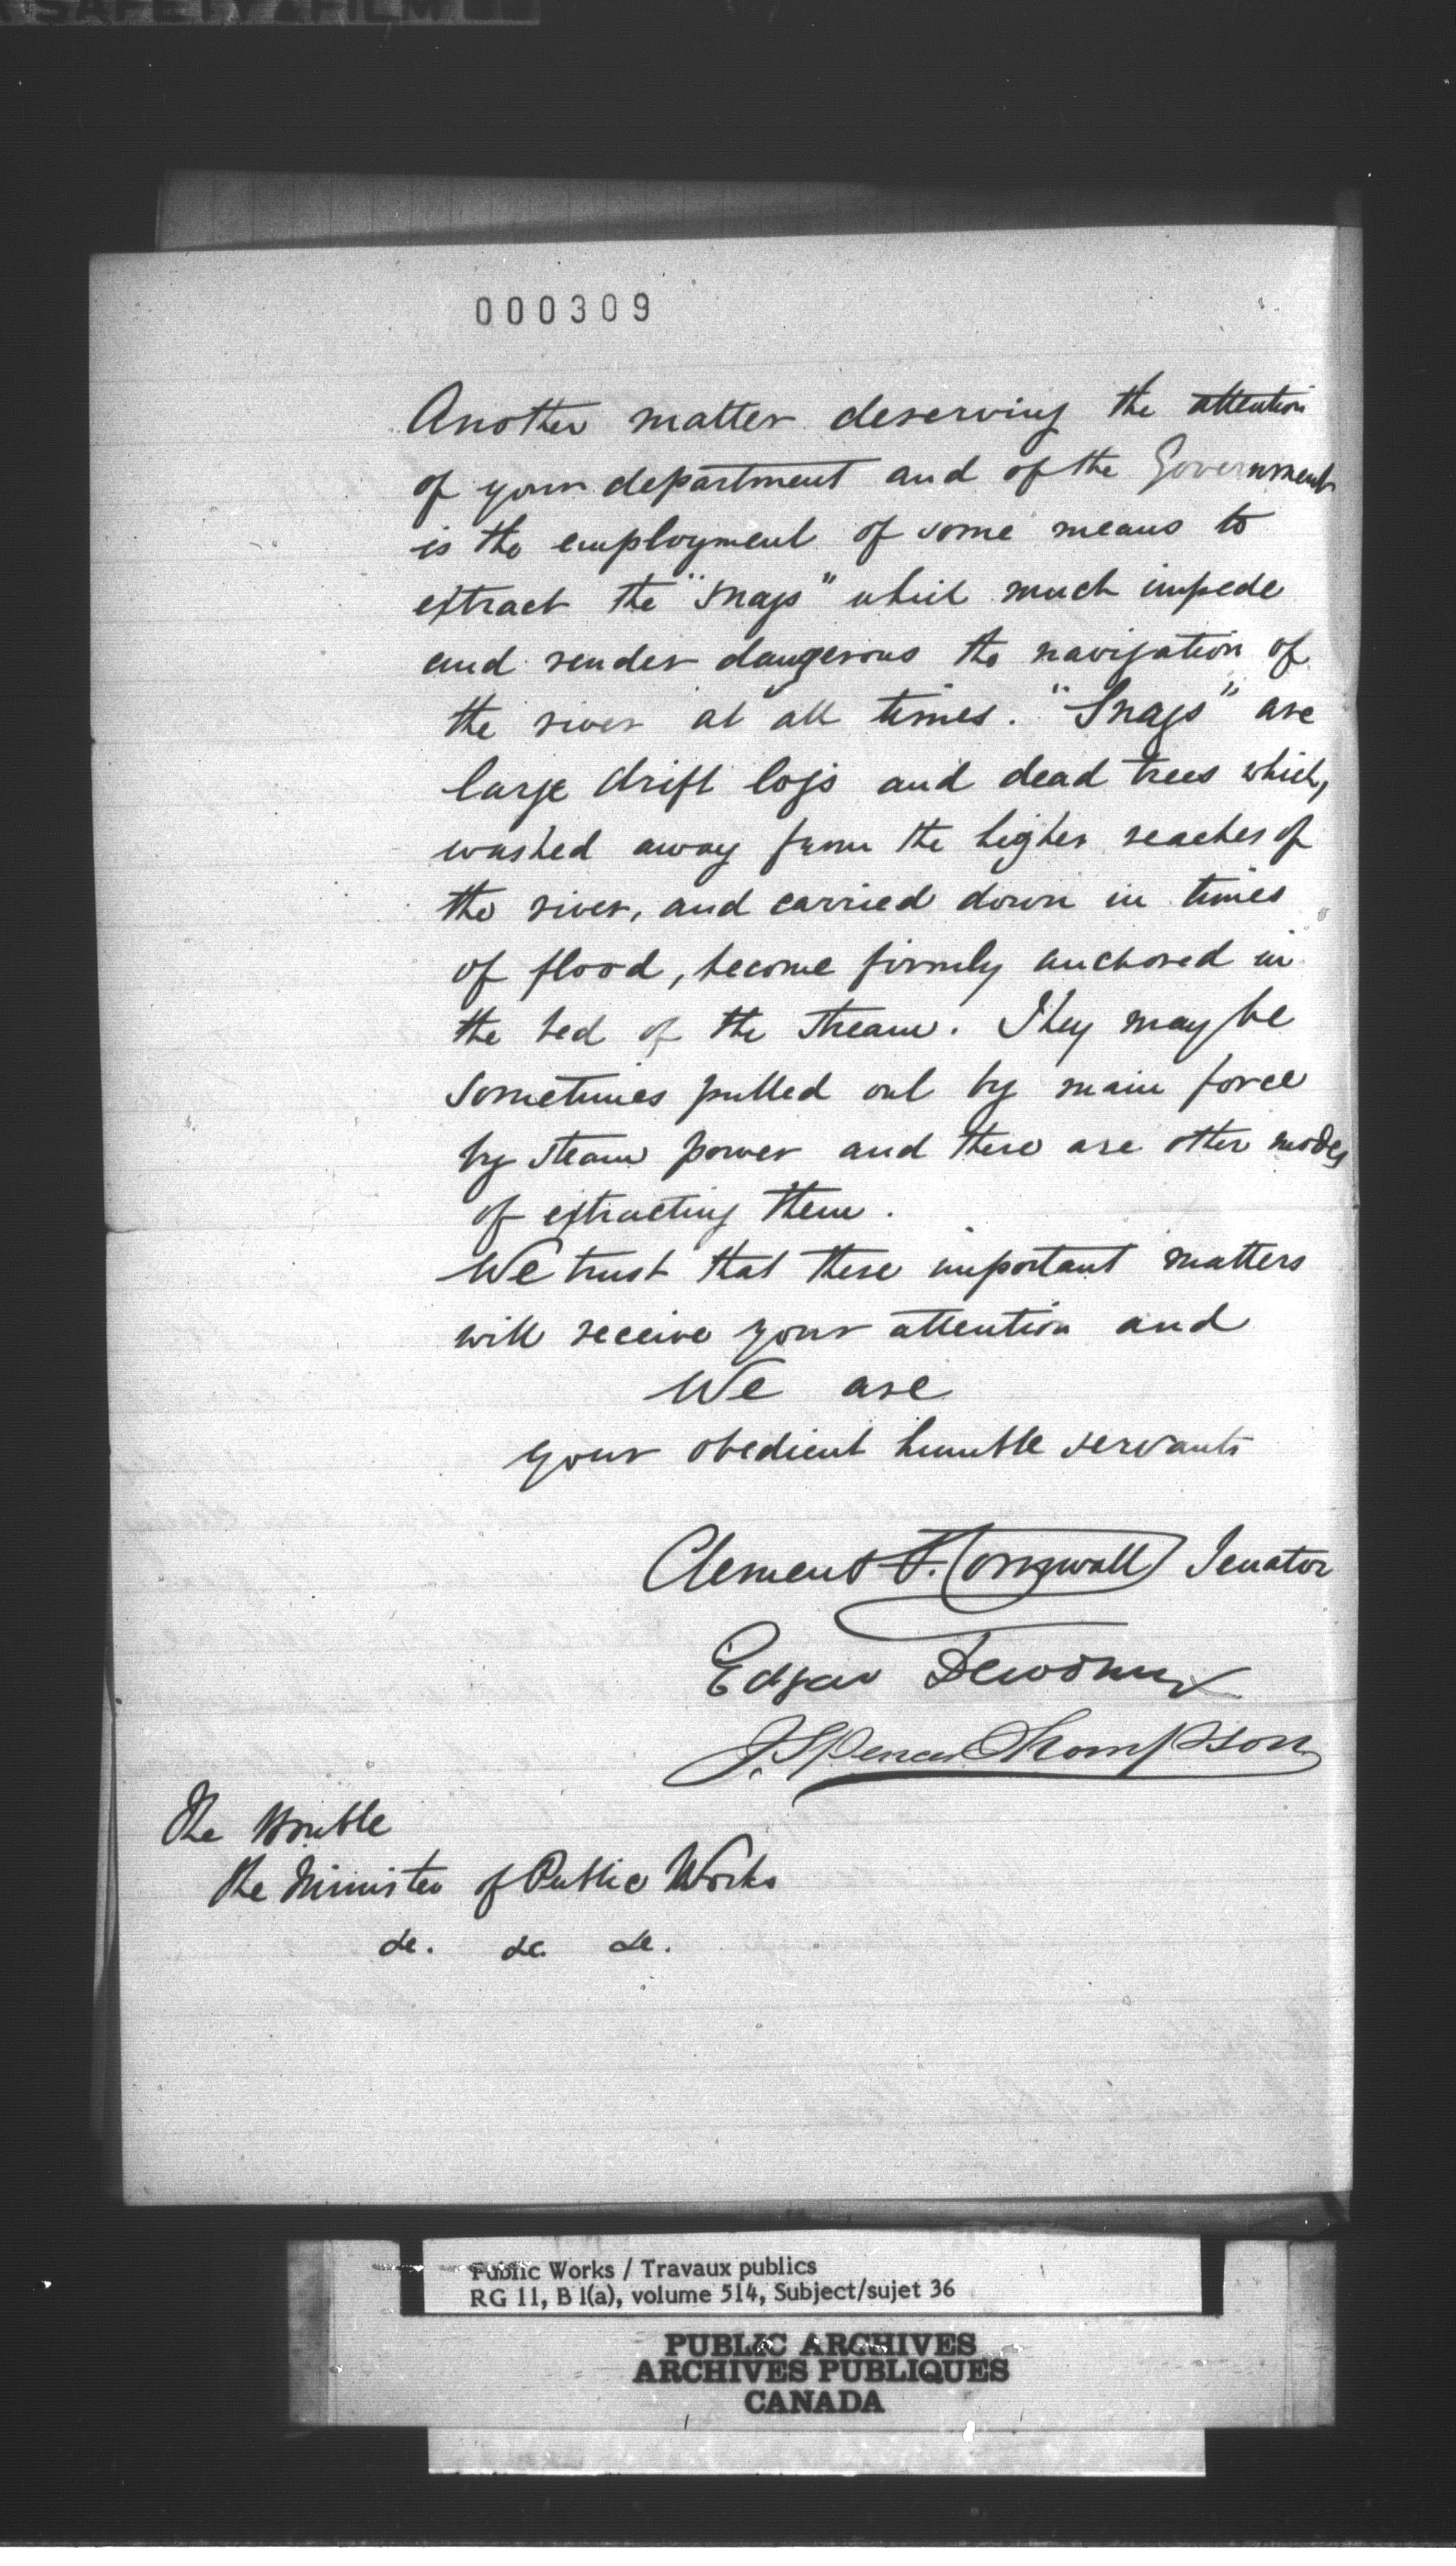 SAFETY FILM
000309
Another matter deserving the attention
of your department and of the Government
is the employment of some means to
extract the "snags" which much impede
and render dangerous the navigation of
the river at all times. "Snags" are
large drift logs and dead trees which,
washed away from the higher reaches of
the river, and carried down in times
of flood, become firmly anchored in
the bed of the stream. They may be
sometimes pulled out by main force
by steam power and there are other modes
of extracting them.
We trust that these important matters
will receive your attention and
We are
your obedient humble servants
Clement F. Cornwall Senator
Edgar Dewdney
J. Spencer Thompson
The Honble
The Minister of Public Works
&c. &c. &c.
Public Works / Travaux publics
RG 11, B 1(a), volume 514, Subject/sujet 36
PUBLIC ARCHIVES
ARCHIVES PUBLIQUES
CANADA